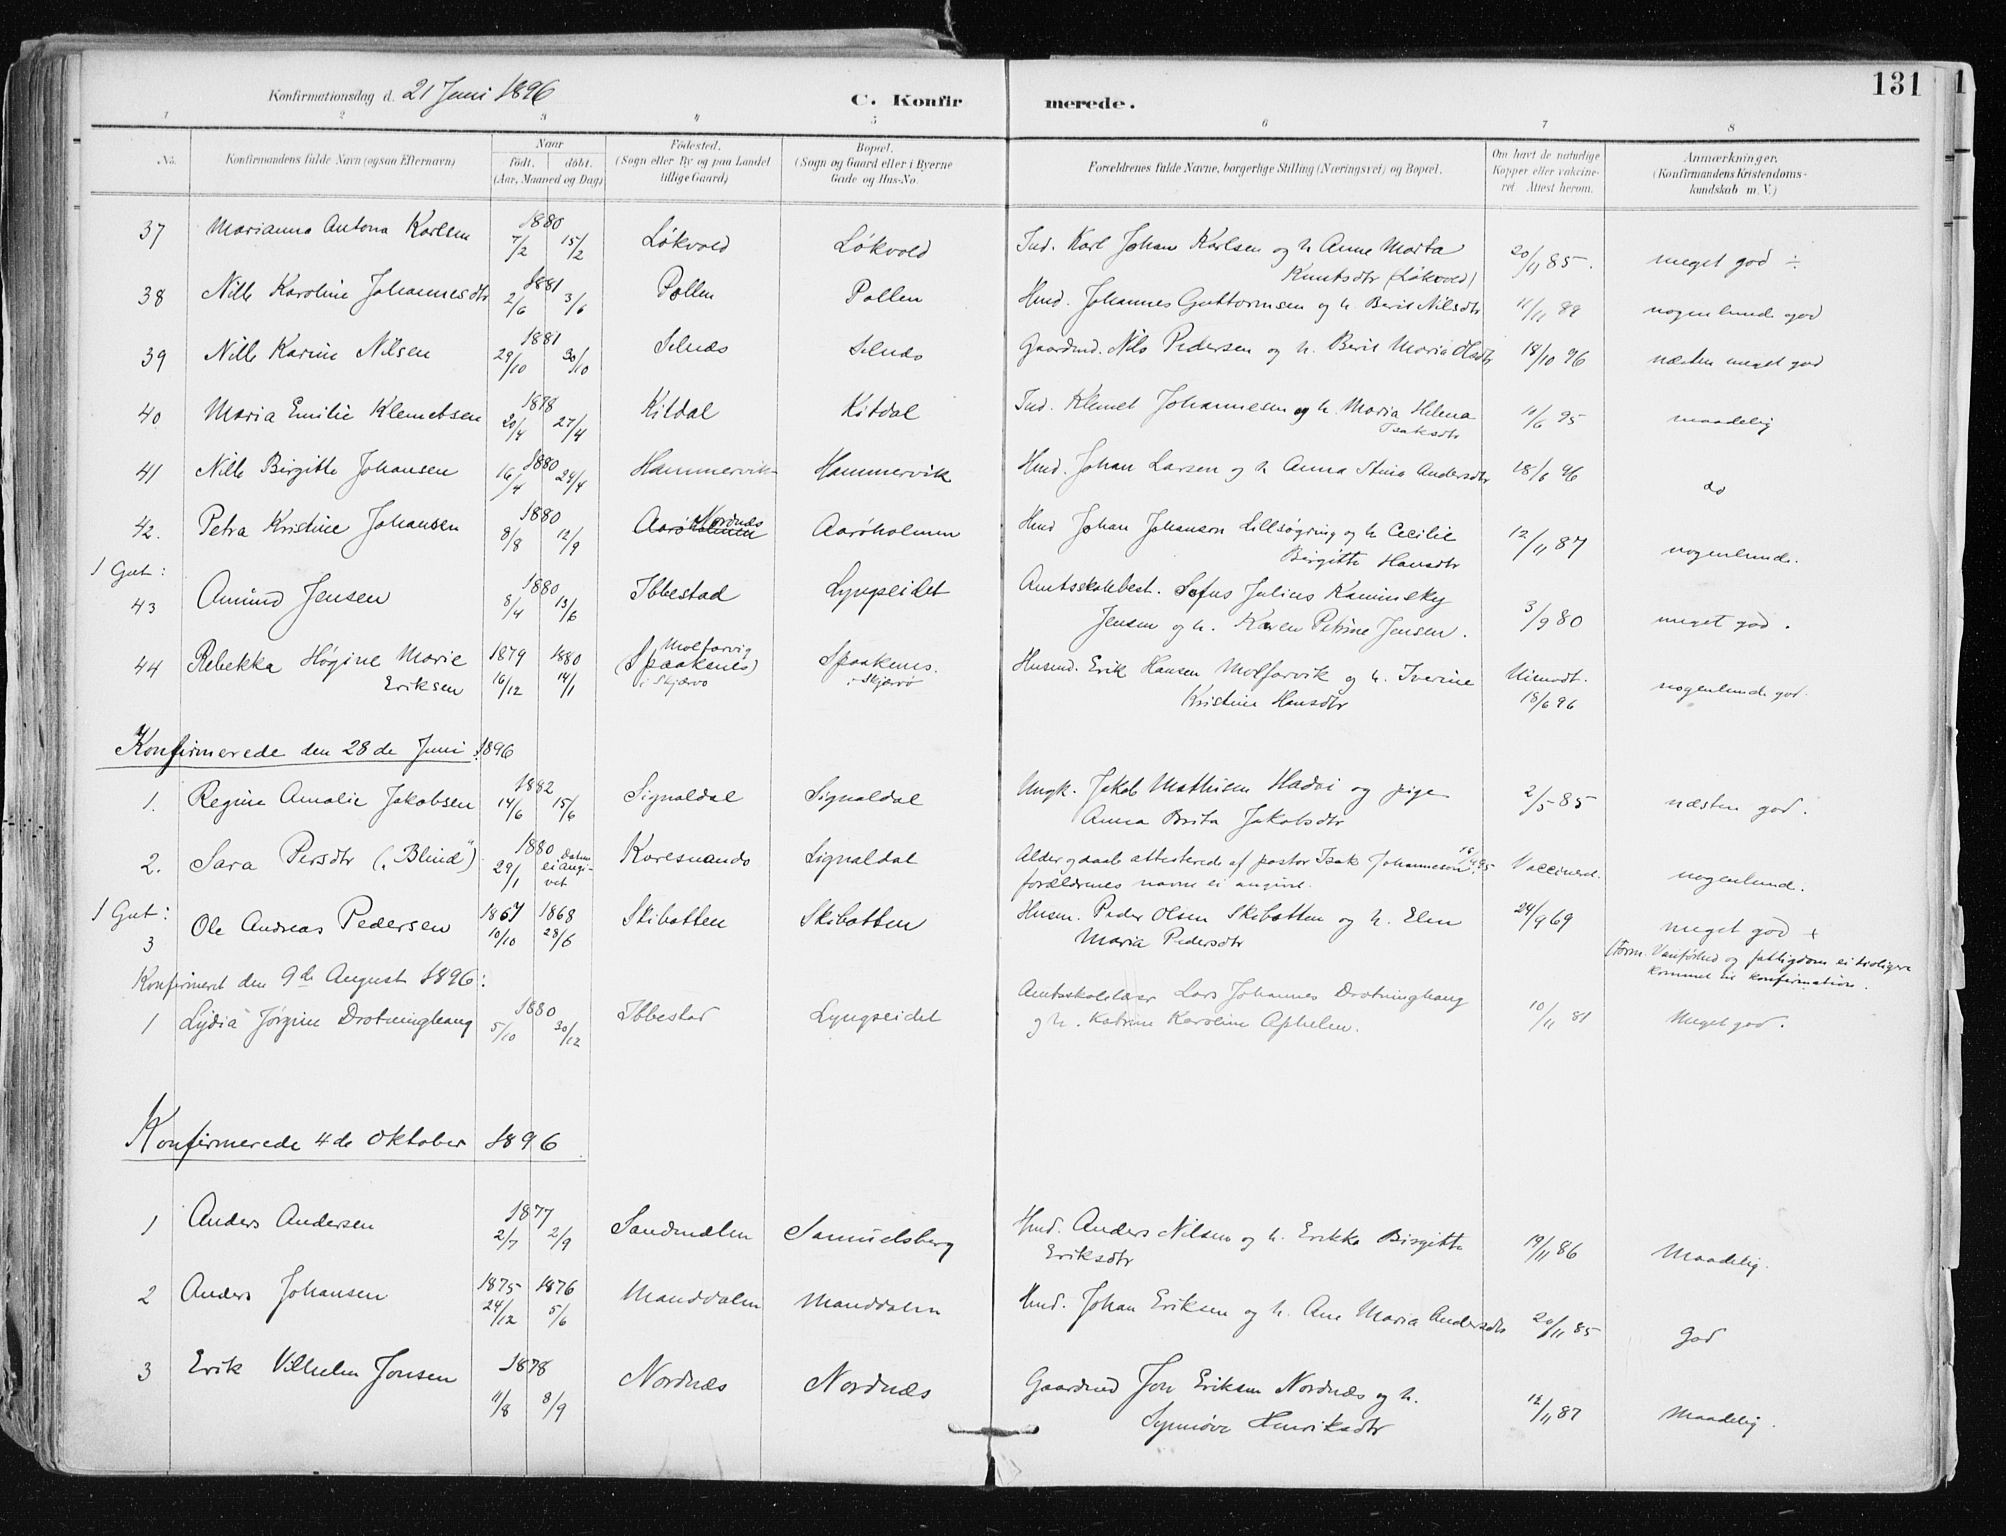 131
Konfirmationsdag d. 21 Juni 1896
C. Konfirmerede.
1 2 3 4 5 6 7 8
No. Konfirmandens fulde Navn (ogsaa Efternavn) Naar født. døbt. (Aar, Maaned og Dag) Fødested. (Sogn eller By og paa Landet tillige Gaard) Bopæl. (Sogn og Gaard eller i Byerne Gade og Hus-No. Forældrenes fulde Navne, borgerlige Stilling (Næringsvei) og Bopæl. Om havt de naturlige Kopper eller vakcineret Attest herom. Anmærkninger. (Konfirmandens Kristendomskundskab m. V.)
37 Marianna Antona Karlsen 1880 7/2 15/2 Løkvold Løkvold Ind. Karl Johan Karlsen og h. Anne Marta Knutsdtr (Løkvold) 20/11 85. meget god ÷
38 Nille Karoline Johannesdtr 1881 2/6 3/6 Pollen Pollen Hmd. Johannes Guttormsen og h. Berit Nilsdtr 11/11 88 nogenlunde god
39 Nille Karine Nilsen 1881 29/10 30/10 Selnæs Selnæs Gaardmd. Nils Pedersen og h. Berit Maria Olsdtr 18/10 96 næsten meget god
40 Maria Emilie Klemetsen 1878 20/4 27/4 Kitdal Kitdal Ind. Klemet Johannesen og h. Maria Helena Isaksdtr 10/6 95 maadelig
41 Nille Birgitte Johansen 1880 16/4 24/4 Hammervik Hammervik Hmd. Johan Larsen og h. Anna Stina Andersdtr 18/6 96 do
42. Petra Kristine Johansen 1880 8/8 12/9 Aarøholmen Nordnæs Aarøholmen Hmd Johan Johanson Lillsøgring og h Cecilie Birgitte Hansdtr 12/11 87 nogenlunde.
1 Gut:
43 Amund Jensen 1880 8/4 13/6 Ibbestad Lyngseidet Amtsskolebest. Sofus Julius Kaminsky Jensen og h. Karen Petrine Jensen. 3/9 80 meget god.
44 Rebekka Høgine Marie Eriksen 1879 16/12 1880 14/1 Molfarvig (Spaaksnes) i Skjærvø Spaakenes. i Skjærvø Husmd. Erik Hansen Molfarvik og h. Iverine Kristine Hansdtr 18/6 96 nogenlunde god.
Konfirmerede den 28de Juni 1896
1. Regine Amalie Jakobsen 1882 14/6 15/6 Signaldal Signaldal Ungk. Jakob Mathisen Hadvi og pige Anna Brita Jakobsdtr 2/5 85 næsten god.
2. Sara Persdtr („Blind") 1880 29/1 Datum ei angivet Karesuando Signaldal Alder og daab attesterede af pastor Isak Johannesson forældrenes navne ei angivne. Vaccineret. nogenlunde.
1 Gut:
3 Ole Andreas Pedersen 1867 10/10 1868 28/6 Skibotten Skibotten Husm. Peder Olsen Skibotten og h. Elen Maria Pedersdtr 24/9 69 meget god + (Form. Vanførhed og fattigdom ei tidligere kommet til konfirmation.
Konfirmeret den 9de August 1896:
1 Lydia Jørgine Drotninghaug 1880 5/10 30/12 Ibbestad Lyngseidet Amtsskolelærer Lars Johannes Drotninghaug og h. Katrine Karoline Aphelen. 10/11 81 Meget god.
Konfirmerede 4de Oktober 1896
1 Anders Andersen 1877 2/7 2/9 Sandmælen Samuelsberg Hmd. Anders Nilsen og h. Erikka Birgitte Eriksdtr 19/11 86 Maadelig.
2 Anders Johansen 1875 24/12 1876 5/6 Manddalen Manddalen Hmd. Johan Eriksen og h. Ane Maria Andersdtr 20/11 85 God
3 Erik Vilhelm Jonsen 1878 11/8 8/9 Nordnæs Nordnæs Gaardmd Jon Eriksen Nordnæs og h. Synnøve Henriksdtr 12/11 87 Maadelig.